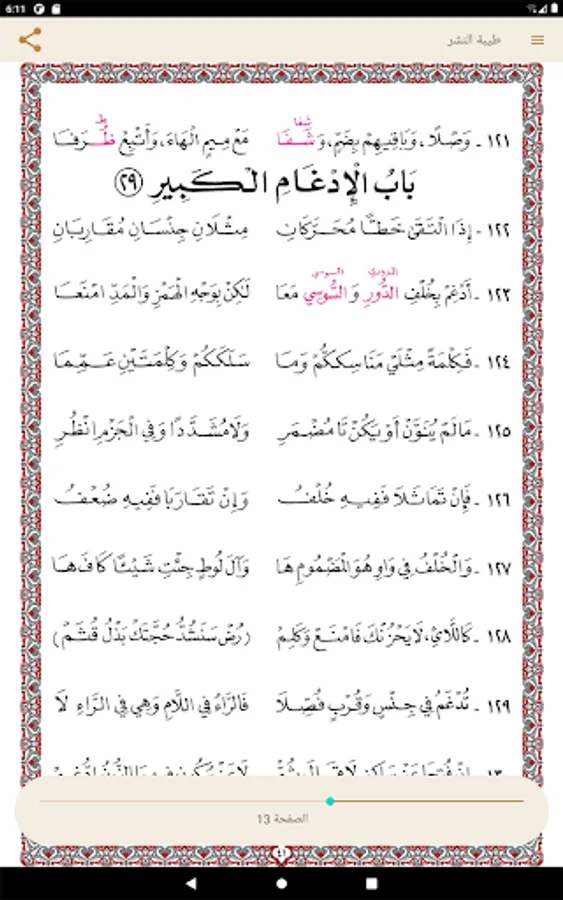 6:11
طيبة النشر
١٢١ ـ وَصْلًا، وَبَاقِيهِمْ بِضَمٍّ، وَشَفَا مَعْ مِيمٍ الْهَاءَ، وَأَتْبِعْ ظُرَفَا
بَابُ الْإِدْغَامِ الْكَبِيرِ (٢٩)
١٢٢ ـ إِذَا الْتَقَىٰ خَطًّا مُحَرَّكَانِ مِثْلَانِ جِنْسَانِ مُقَارِبَانِ
الدوري السوسي
١٢٣ ـ أَدْغِمْ بِخُلْفِ الدُّورِ وَ السُّوسِي مَعَا لَكِنْ بِوَجْهِ الْهَمْزِ وَالْمَدِّ امْنَعَا
١٢٤ ـ فَكِلْمَةً مِثْلَيْ مَنَاسِكَكُمْ وَمَا سَلَكَكُمْ وَكِلْمَتَيْنِ عَمِّمَا
١٢٥ ـ مَالَمْ يُنَوَّنْ أَوْ يَكُنْ تَا مُضْمَرِ وَلَا مُشَدَّدًا وَفِي الْجَزْمِ انْظُرِ
١٢٦ ـ فَإِنْ تَمَاثَلَا فَفِيهِ خُلْفُ وَإِنْ تَقَارَبَا فَفِيهِ ضُعْفُ
١٢٧ ـ وَالْخُلْفُ فِي وَاوِ هُوَ الْمَضْمُومِ هَا وَآلَ لُوطٍ جِئْتِ شَيْئًا كَافَ هَا
١٢٨ ـ كَاللَّائِ، لَا يَحْزُنْكَ فَامْنَعْ وَكَلِمْ (رُضْ سَنَشُدُّ حُجَّتَكْ بَذْلُ قُثَمْ)
١٢٩ ـ تُدْغَمُ فِي جِنْسٍ وَقُرْبٍ فُصِّلَا فَالرَّاءُ فِي اللَّامِ وَهِي فِي الرَّاءِ لَا
الصفحة 13
٤١